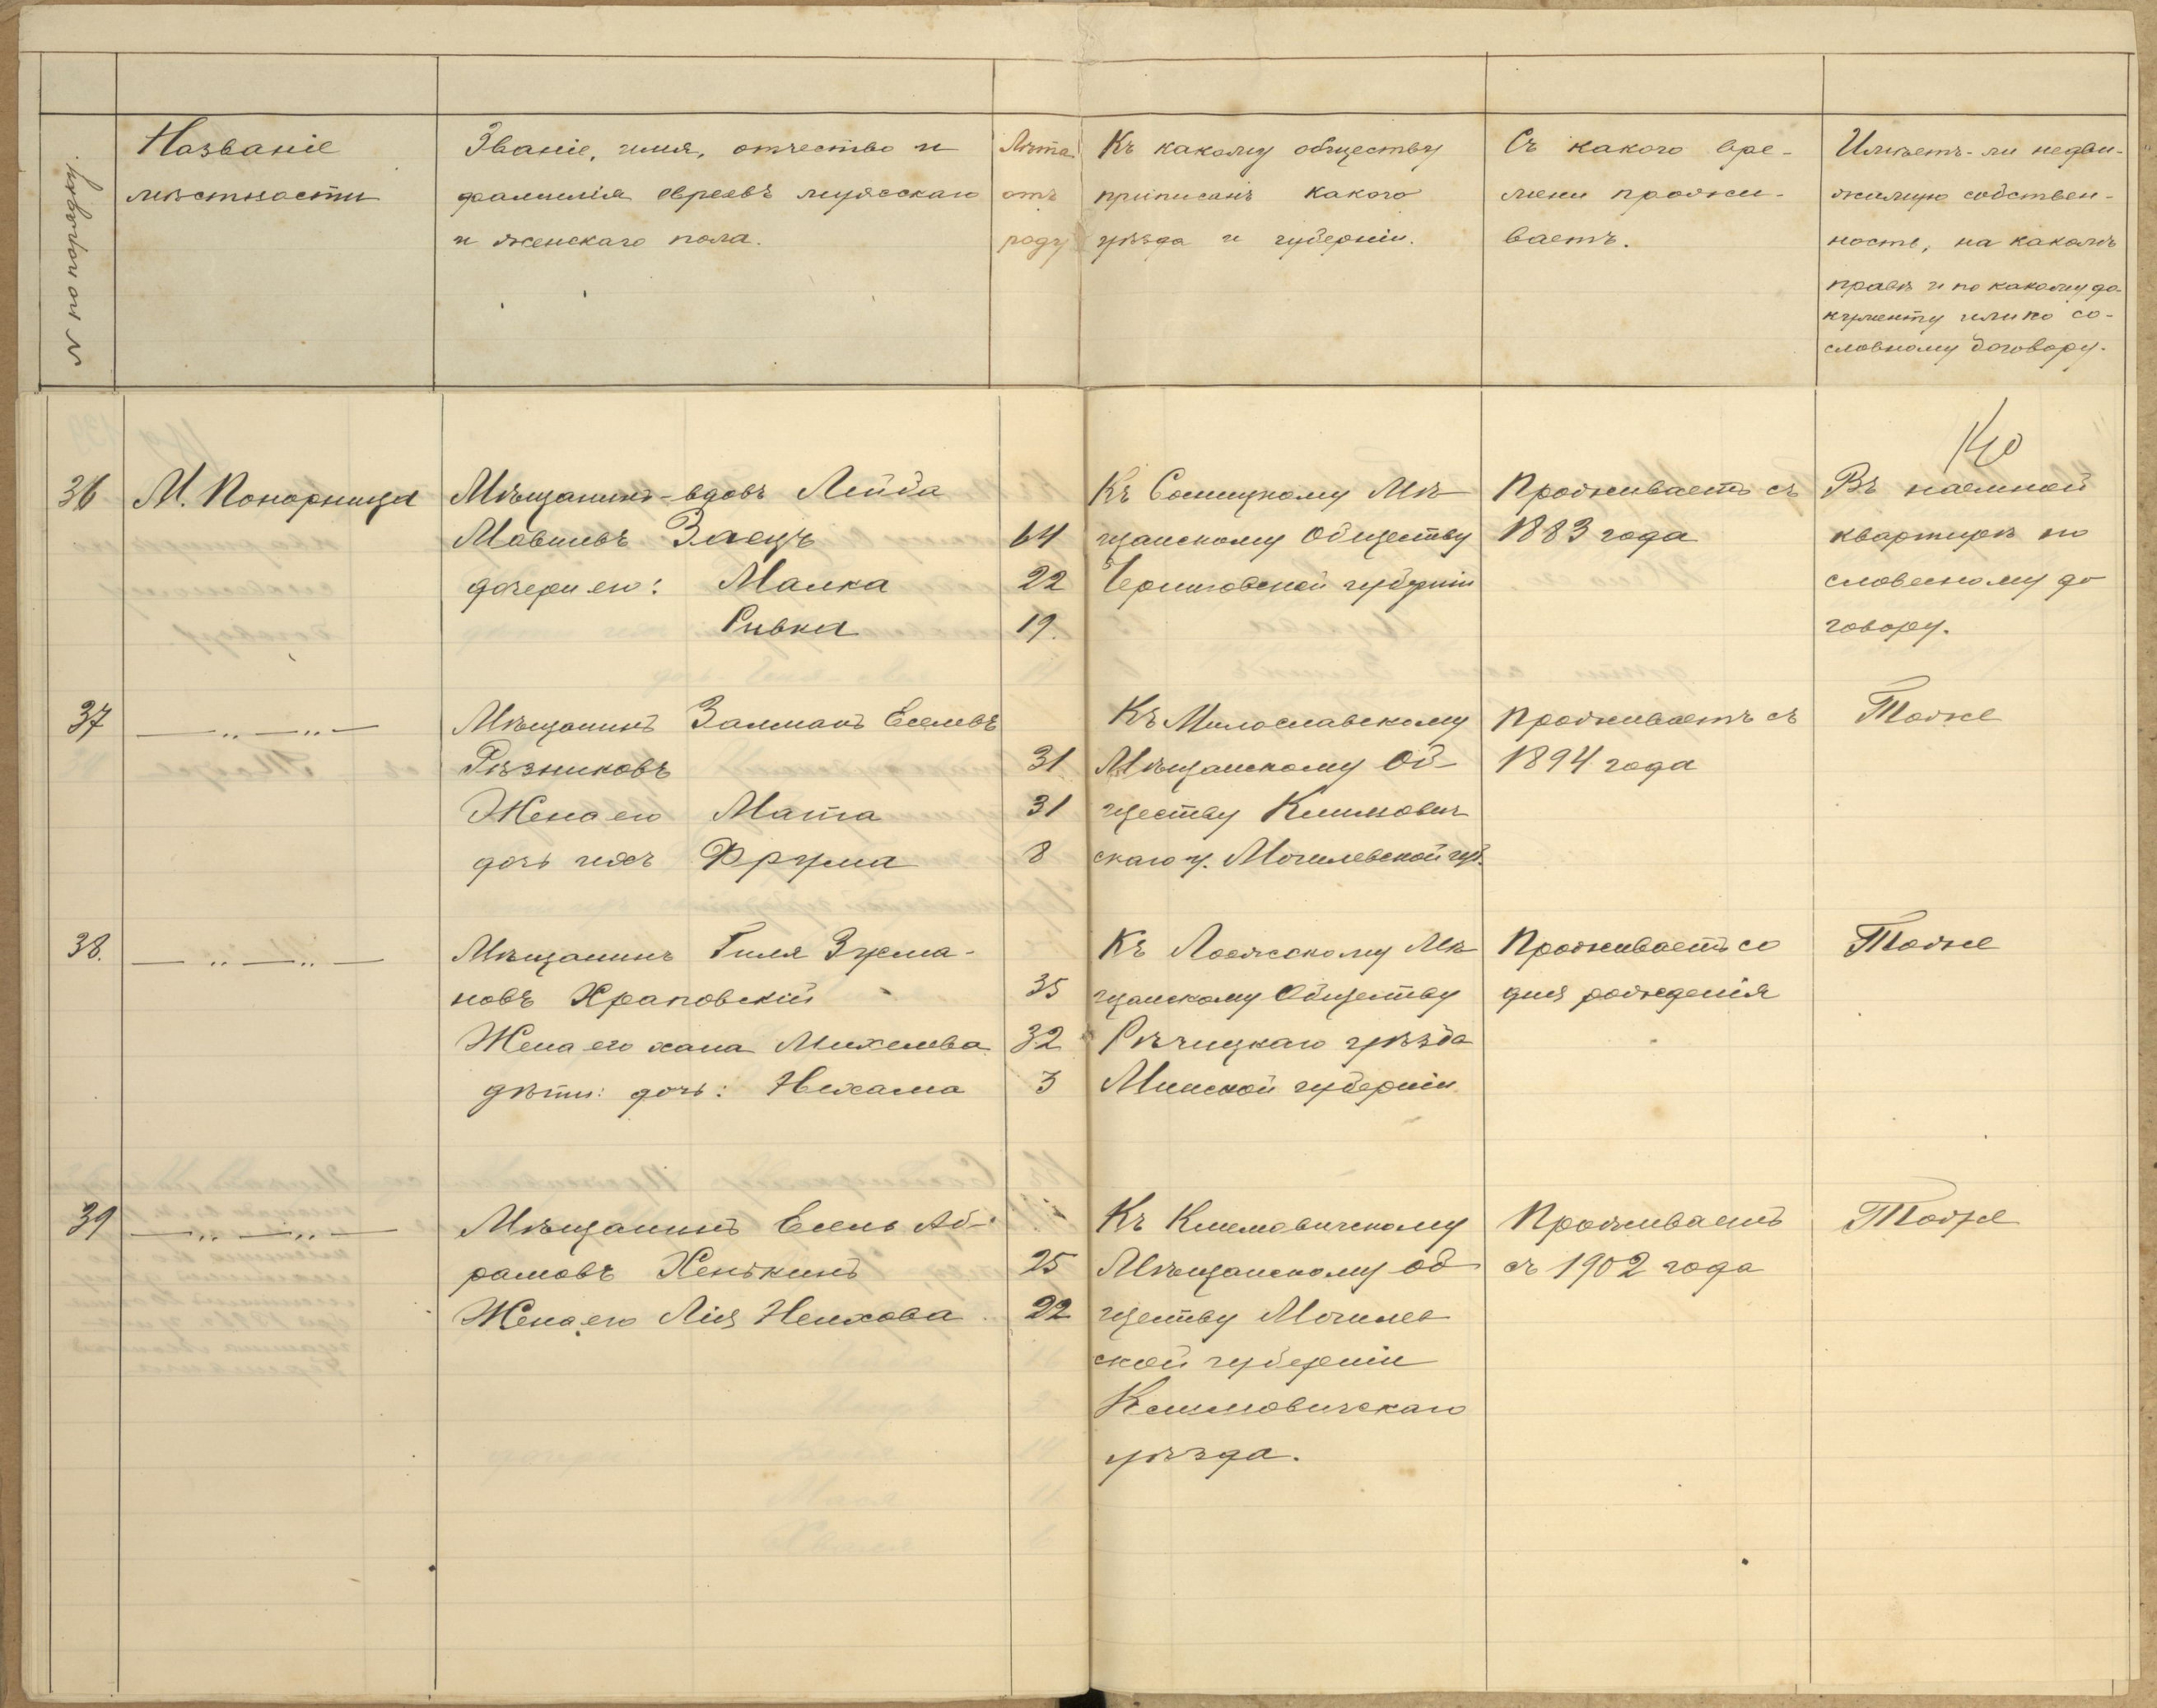 № по порядку.
Названіе
мѣстности
Званіе, имя, отчество и
фамилія евреевъ мужскаго
и женскаго пола.
Лѣта
отъ
роду
Къ какому обществу
приписанъ какого
уѣзда и губерніи.
Съ какого вре-
мени прожи-
ваетъ.
Имѣетъ-ли недви-
жимую собствен-
ность, на какомъ
правѣ и по какому до-
кументу или по со-
словному договору.
140
36
М. Понорница
Мѣщанинъ-вдовъ Лейба
Мовшевъ Заецъ 64
дочери его: Малка 22
Ривка 19.
Къ Сосницкому Мѣ-
щанскому Обществу
Черниговской губерніи
Проживаетъ съ
1883 года
Въ наемной
квартирѣ по
словесному до
говору.
37
— „ — „ —
Мѣщанинъ Залманъ Еселевъ
Рѣзниковъ 31
Жена его Мата 31
дочь ихъ Фрума 8
Къ Милославскому
Мѣщанскому Об-
ществу Климович
скаго у. Могилевской губ.
Проживаетъ съ
1894 года
Тоже
38.
— „ — „ —
Мѣщанинъ Гиля Зусма-
новъ Храповскій 35
Жена его хана Михелева 32
дѣти: дочь: Нехама 3
Къ Лоевскому Мѣ
щанскому Обществу
Рѣчицкаго уѣзда
Минской губерніи
Проживаетъ со
дня рожденія
Тоже
39
— „ — „ —
Мѣщанинъ Есель Аб-
рамовъ Хенькинъ 25
Жена его Лія Ненхова 22
Къ Климовичскому
Мѣщанскому об
ществу Могилев
ской губерніи
Климовичскаго
уѣзда.
Проживаетъ
съ 1902 года
Тоже